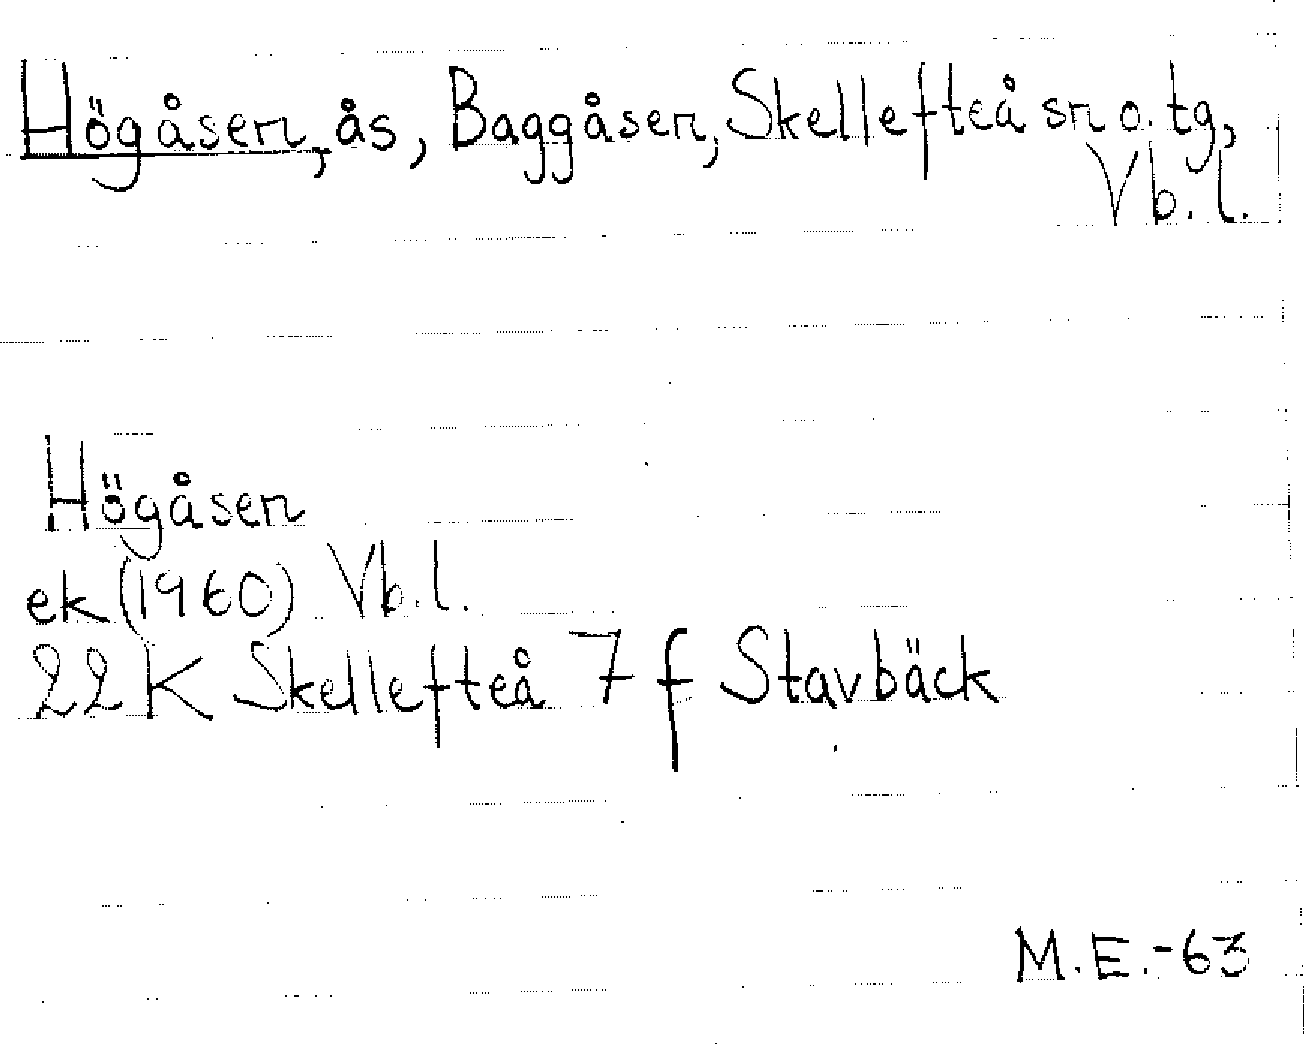 Högåsen, ås, Baggåsen, Skellefteå sn o. tg,
Vb. l.
Högåsen
ek (1960) Vb. l.
22 K Skellefteå 7 f Stavbäck
M.E.-63